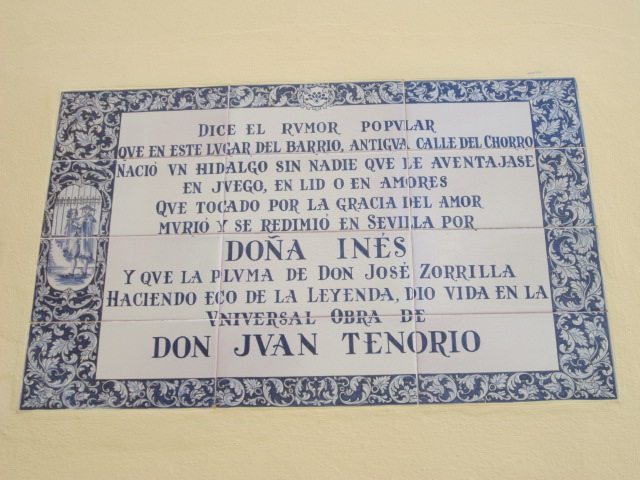 DICE EL RVMOR POPVLAR
QVE EN ESTE LVGAR DEL BARRIO, ANTIGVA CALLE DEL CHORRO
NACIÓ VN HIDALGO SIN NADIE QVE LE AVENTAJASE
EN JVEGO, EN LID O EN AMORES
QVE TOCADO POR LA GRACIA DEL AMOR
MVRIÓ Y SE REDIMIÓ EN SEVILLA POR
DOÑA INÉS
Y QVE LA PLVMA DE DON JOSÈ ZORRILLA
HACIENDO ECO DE LA LEYENDA, DIO VIDA EN LA
VNIVERSAL OBRA DE
DON JVAN TENORIO